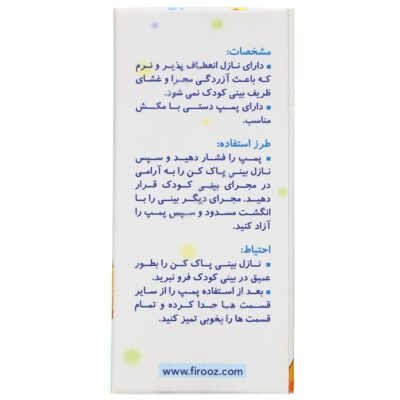 مشخصات:
▪ دارای نازل انعطاف پذیر و نرم
که باعث آزردگی مجرا و غشای
ظریف بینی کودک نمی شود.
▪ دارای پمپ دستی با مکش
مناسب.
طرز استفاده:
▪ پمپ را فشار دهید و سپس
نازل بینی پاک کن را به آرامی
در مجرای بینی کودک قرار
دهید. مجرای دیگر بینی را با
انگشت مسدود و سپس پمپ را
آزاد کنید.
احتیاط:
▪ نازل بینی پاک کن را بطور
عمیق در بینی کودک فرو نبرید.
▪ بعد از استفاده پمپ را از سایر
قسمت ها جدا کرده و تمام
قسمت ها را بخوبی تمیز کنید.
www.firooz.com